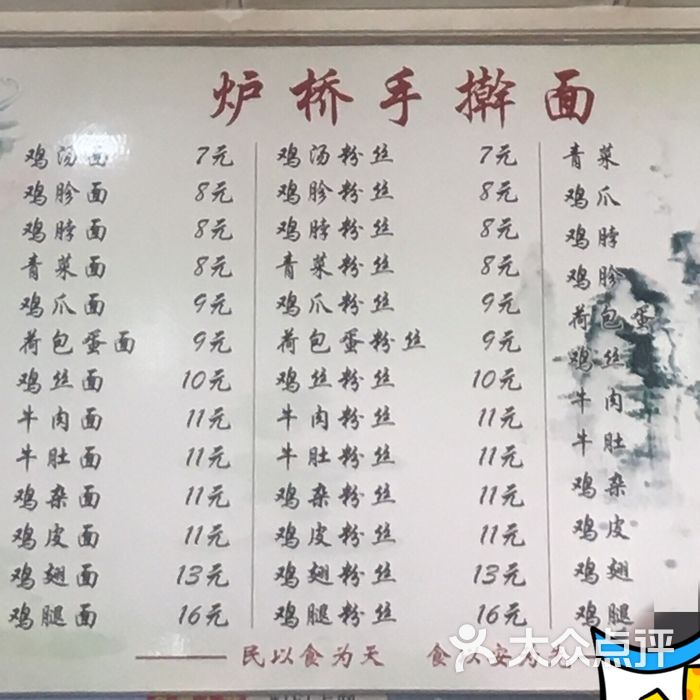 炉桥手擀面
鸡汤面 7元 鸡汤粉丝 7元 青菜
鸡胗面 8元 鸡胗粉丝 8元 鸡爪
鸡脖面 8元 鸡脖粉丝 8元 鸡脖
青菜面 8元 青菜粉丝 8元 鸡胗
鸡爪面 9元 鸡爪粉丝 9元 荷包蛋
荷包蛋面 9元 荷包蛋粉丝 9元 鸡丝
鸡丝面 10元 鸡丝粉丝 10元 牛肉
牛肉面 11元 牛肉粉丝 11元 牛肚
牛肚面 11元 牛肚粉丝 11元 鸡杂
鸡杂面 11元 鸡杂粉丝 11元 鸡皮
鸡皮面 11元 鸡皮粉丝 11元 鸡翅
鸡翅面 13元 鸡翅粉丝 13元 鸡腿
鸡腿面 16元 鸡腿粉丝 16元
民以食为天 食以安为先
大众点评